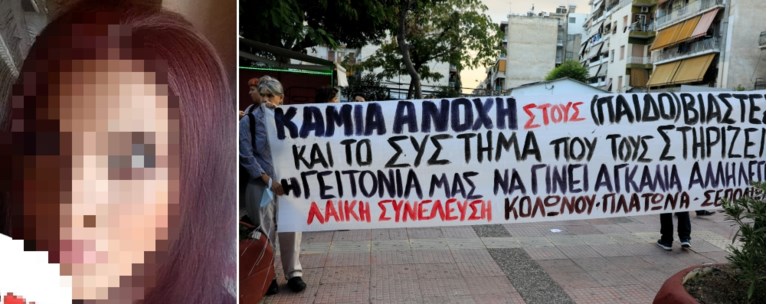 ΚΑΜΙΑ ΑΝΟΧΗ ΣΤΟΥΣ (ΠΑΙΔΟ)ΒΙΑΣΤΕΣ
ΚΑΙ ΤΟ ΣΥΣΤΗΜΑ ΠΟΥ ΤΟΥΣ ΣΤΗΡΙΖΕΙ
Η ΓΕΙΤΟΝΙΑ ΜΑΣ ΝΑ ΓΙΝΕΙ ΑΓΚΑΛΙΑ ΑΛΛΗΛΕΓ
ΛΑΙΚΗ ΣΥΝΕΛΕΥΣΗ ΚΟΛΩΝΟΥ·ΠΛΑΤΩΝΑ·ΣΕΠΟΛ